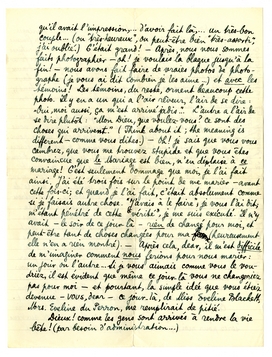 qu'il avait l'impression... d'avoir fait là,... un très-bon
couple... (ou "très-heureux", ou peut-être bien "très-assorti"
j'ai oublié.) C'était grand! - Après, nous nous sommes
faits photographier - oh! je voulais la blague jusqu'à la
fin! - nous avons fait faire de vraies photos de photo-
graphe (je vous ai dit combien je les aime...) et avec les
témoins! Les témoins, du reste, ornent beaucoup cette
photo. Il y en a un qui a l'air rêveur, l'air de se dire:
"Oui, moi aussi, ça m'est arrivé jadis". L'autre a l'air de
se dire plutôt: "Mon Dieu, que voulez-vous? ce sont des
choses qui arrivent." (Think about it; the meaning is
different - comme vous dites) - Oh! je sais que vous vous
cambrez, que vous me trouvez stupide et que vous êtes
convaincue que le mariage est bien, n'en déplaise à ce
mariage! C'est seulement dommage que moi, je l'ai fait
ainsi, j'ai été trois fois sur le point de me marier - avant
cette fois-ci; et quand je l'ai fait, c'était absolument comme
si je faisais autre chose. "J'avais à le faire"; je vous l'ai dit;
m'étant pénétré de cette "vérité", je me suis exécuté. Il n'y
avait - ce soir de ce jour-là - rien de changé pour moi, et
peut-être tant de choses changées pour (heureusement
elle n'en a rien montré). - Après cela, dear, il m'est difficile
de m'imaginer comment nous ferions pour nous marier:
un jour ou l'autre. si je vous aimais comme vous le vou-
driez, il est évident que même ce jour-là vous ne changeriez
pas pour moi - et pourtant, la simple idée que vous étiez
devenue - vous, dear - ce jour-là, de Miss Eveline Blackett,
Mrs. Eveline du Perron, me remplirait de pitié.
Dieu! comme les gens sont arrivés à rendre la vie
bête! (par besoin d'administration...)